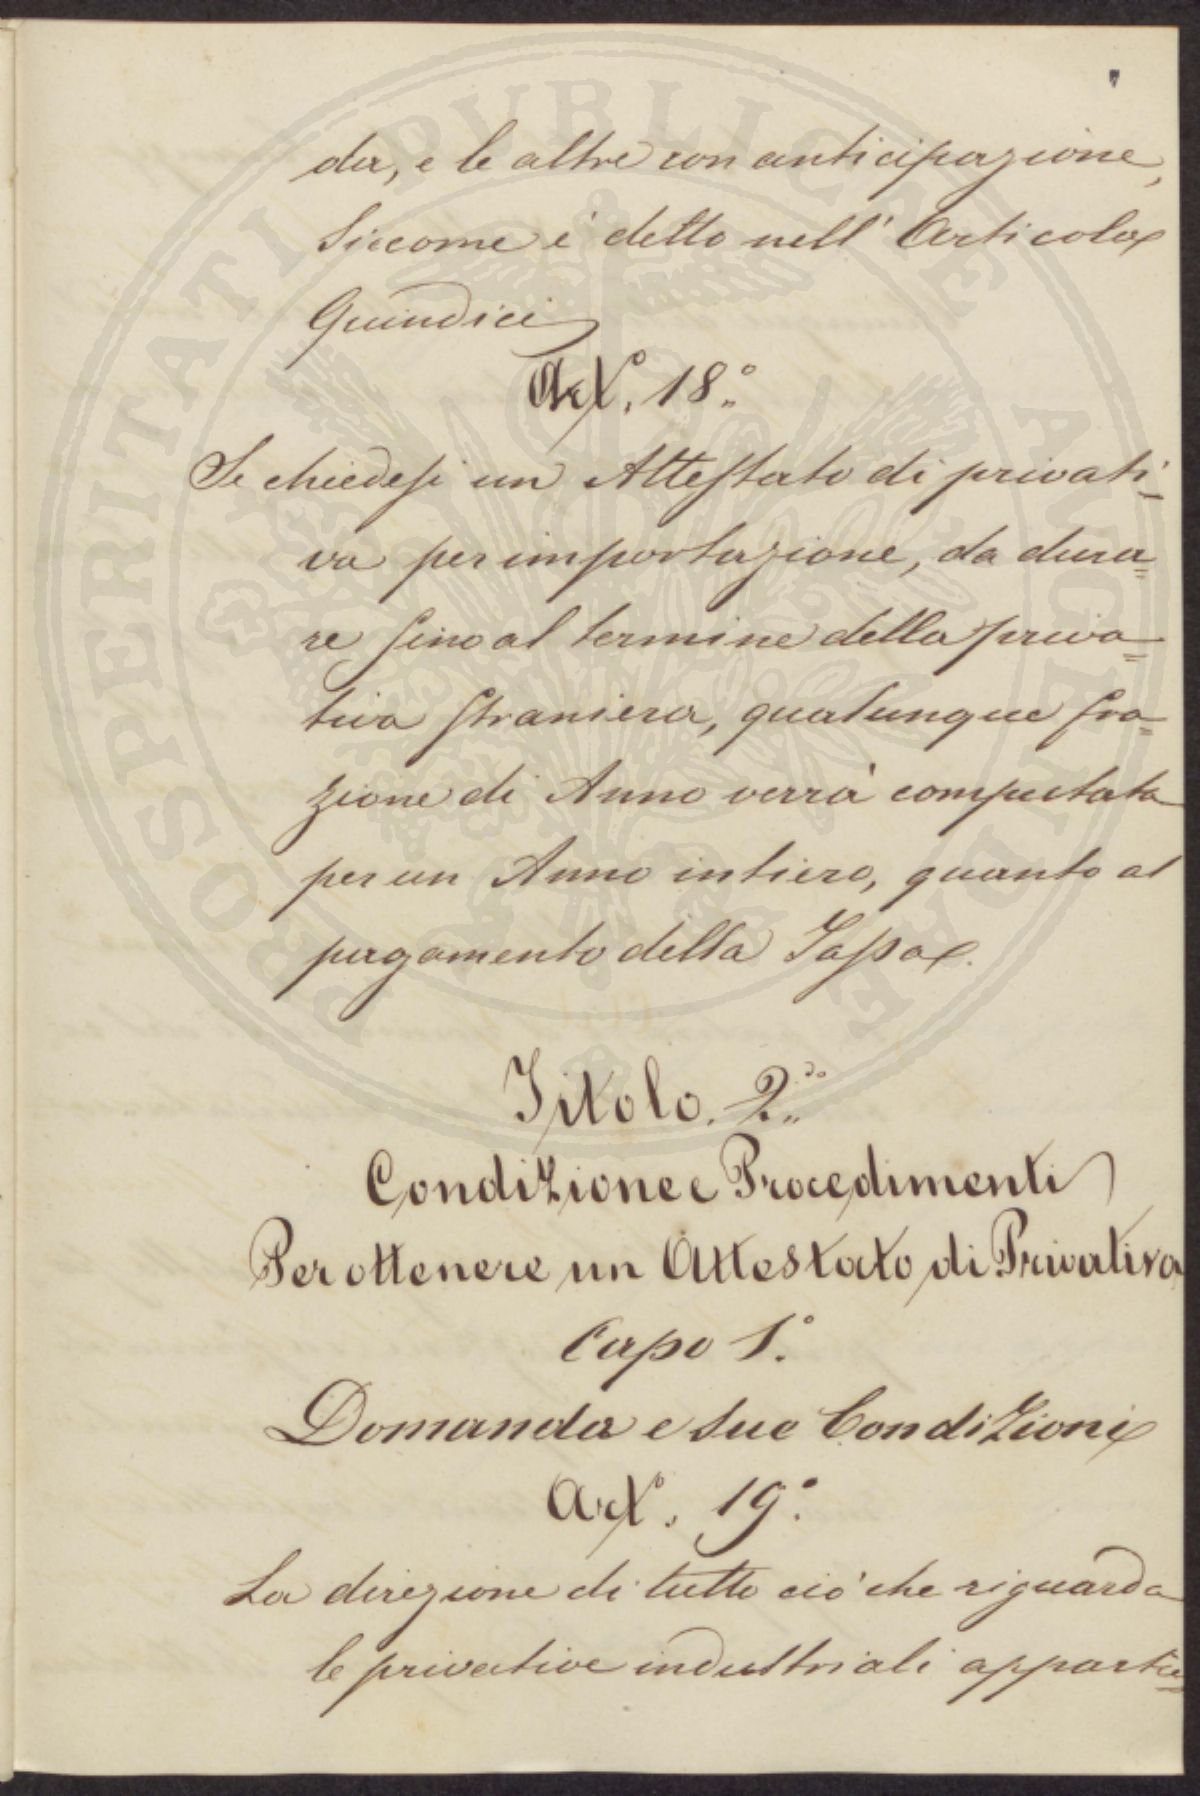 da, e le altre con anticipazione,
siccome è detto nell' Articolo
Quindici
Art.º 18.º
Se chiedesi un Attestato di privati-
va per importazione, da dura=
re fino al termine della priva=
tiva straniera, qualunque fra=
zione di Anno verrà computata
per un Anno intiero, quanto al
pagamento della Tassa.
Titolo. 2.do
Condizione e Procedimenti
Per ottenere un Attestato di Privativa
Capo 1.º
Domanda e sue Condizioni
Art.º 19.º
La direzione di tutto ciò che riguarda
le privative industriali appartie=
PROSPERITATI PUBLICAE AUGENDAE